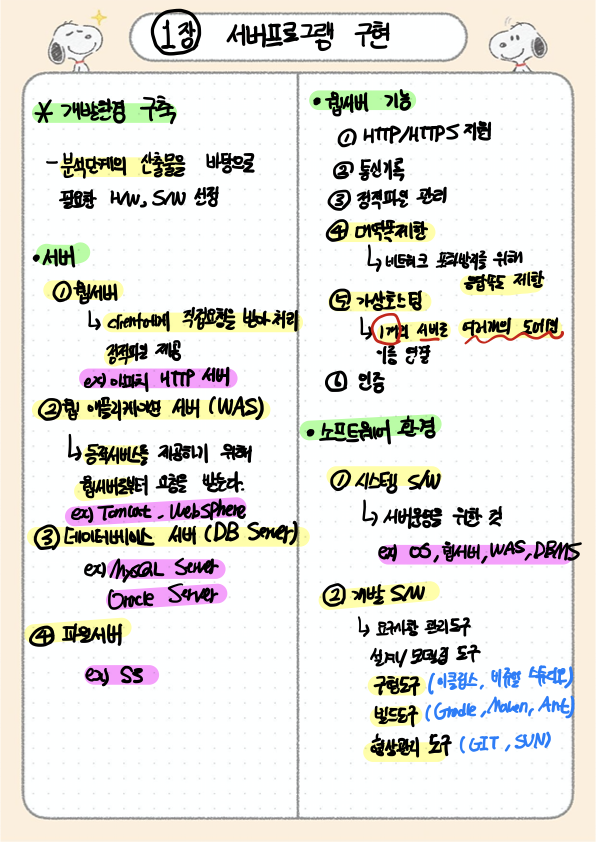 1장 서버프로그램 구현
* 개발환경 구축
- 분석단계의 산출물을 바탕으로
필요한 H/W, S/W 선정
• 서버
① 웹서버
↳ client에게 직접요청을 받아 처리
정적파일 제공
ex) 아파치 HTTP 서버
② 웹 애플리케이션 서버 (WAS)
↳ 동적서비스를 제공하기 위해
웹서버로부터 요청을 받는다.
ex) Tomcat, WebSphere
③ 데이터베이스 서버 (DB Server)
ex) MySQL Server
Oracle Server
④ 파일서버
ex) S3
• 웹서버 기능
① HTTP/HTTPS 지원
② 통신기록
③ 정적파일 관리
④ 대역폭제한
↳ 네트워크 포화방지를 위해
응답속도 제한
⑤ 가상호스팅
↳ 1개의 서버로 여러개의 도메인
이름 연결
⑥ 인증
• 소프트웨어 환경
① 시스템 S/W
↳ 서버운영을 위한 것
ex) OS, 웹서버, WAS, DBMS
② 개발 S/W
↳ 요구사항 관리도구
설계/모델링 도구
구현도구 (이클립스, 비쥬얼 스튜디오)
빌드도구 (Gradle, Maven, Ant)
형상관리 도구 (GIT, SUN)